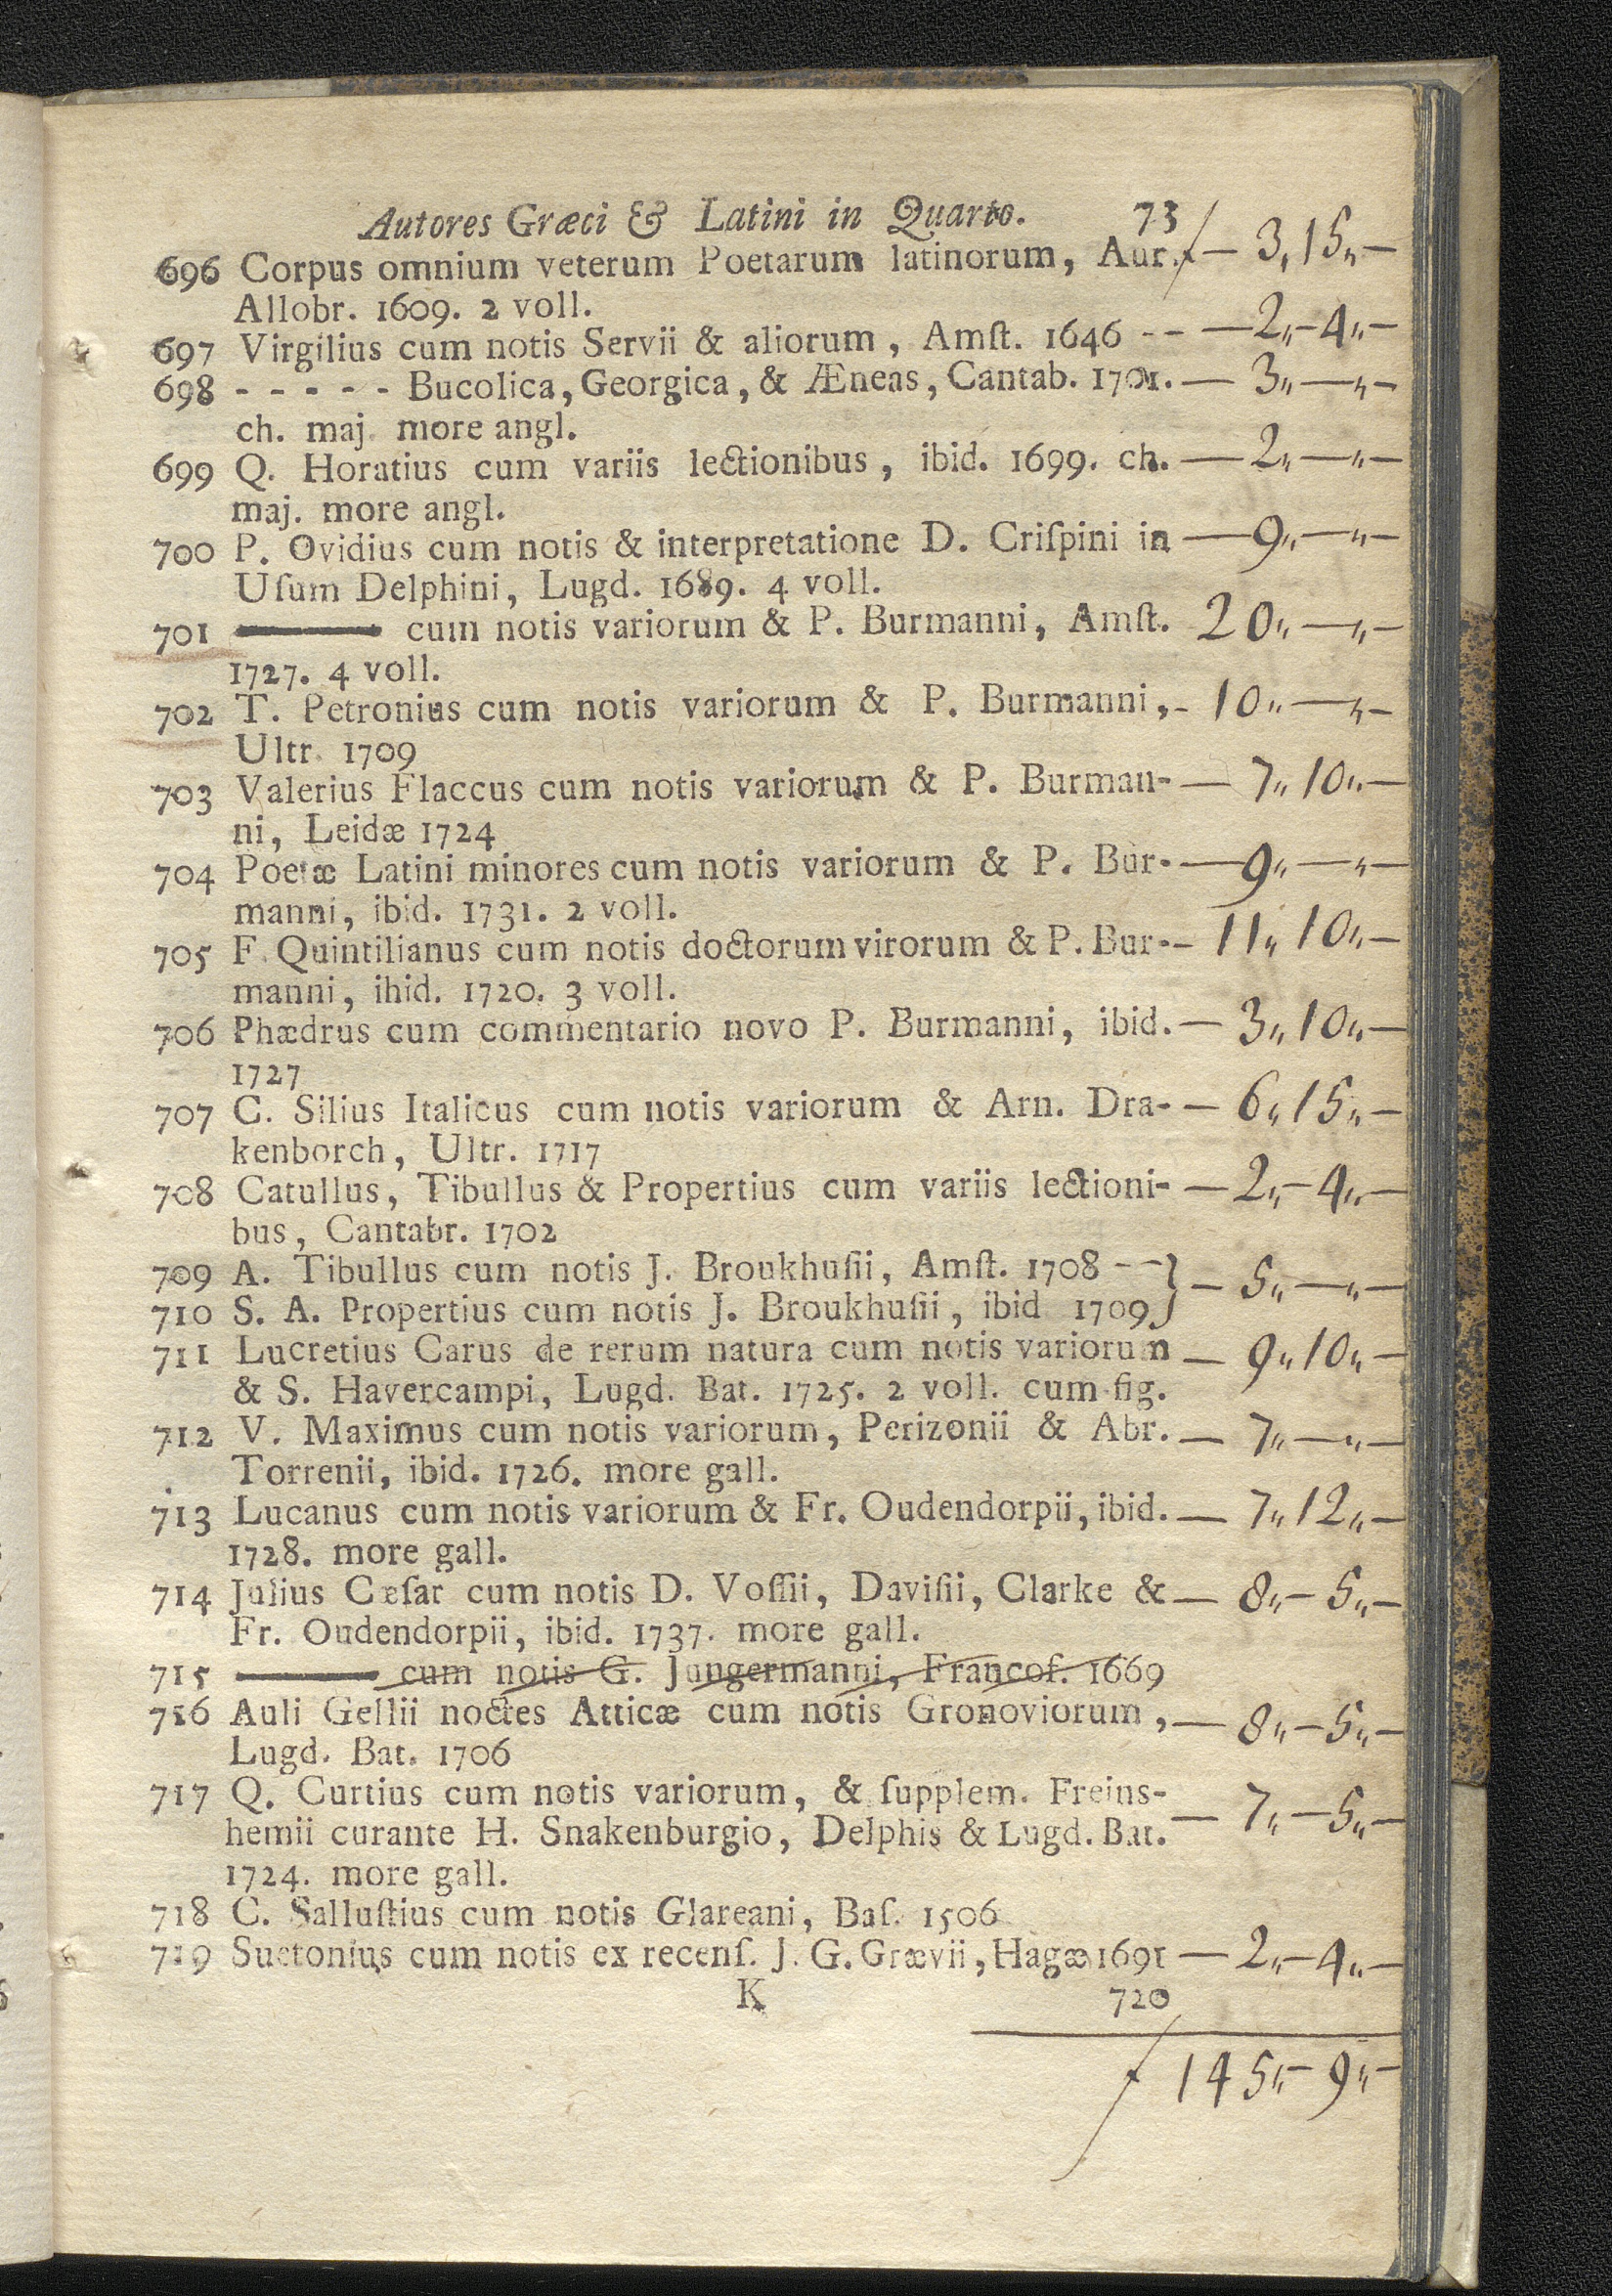 Autores Græci & Latini in Quarto. 73
696 Corpus omnium veterum Poetarum latinorum, Aur. ƒ — 3,, 15,, —
Allobr. 1609. 2 voll.
697 Virgilius cum notis Servii & aliorum, Amſt. 1646 -- — 2,, — 4,, —
698 - - - - - Bucolica, Georgica, & Æneas, Cantab. 1701. — 3,, — ,, —
ch. maj. more angl.
699 Q. Horatius cum variis lectionibus, ibid. 1699. ch. — 2,, — ,, —
maj. more angl.
700 P. Ovidius cum notis & interpretatione D. Criſpini in — 9,, — ,, —
Uſum Delphini, Lugd. 1689. 4 voll.
701 ——— cum notis variorum & P. Burmanni, Amſt. 20,, — ,, —
1727. 4 voll.
702 T. Petronius cum notis variorum & P. Burmanni, - 10,, — ,, —
Ultr. 1709
703 Valerius Flaccus cum notis variorum & P. Burman- — 7,, 10,, —
ni, Leidæ 1724
704 Poetæ Latini minores cum notis variorum & P. Bur- — 9,, — ,, —
manni, ibid. 1731. 2 voll.
705 F. Quintilianus cum notis doctorum virorum & P. Bur- — 11,, 10,, —
manni, ihid. 1720. 3 voll.
706 Phædrus cum commentario novo P. Burmanni, ibid. — 3,, 10,, —
1727
707 C. Silius Italicus cum notis variorum & Arn. Dra- — 6,, 15,, —
kenborch, Ultr. 1717
708 Catullus, Tibullus & Propertius cum variis lectioni- — 2,, — 4,, —
bus, Cantabr. 1702
709 A. Tibullus cum notis J. Broukhuſii, Amſt. 1708 -- } — 5,, — ,, —
710 S. A. Propertius cum notis J. Broukhuſii, ibid 1709
711 Lucretius Carus de rerum natura cum notis variorum — 9,, 10,, —
& S. Havercampi, Lugd. Bat. 1725. 2 voll. cum fig.
712 V. Maximus cum notis variorum, Perizonii & Abr. — 7,, — ,, —
Torrenii, ibid. 1726. more gall.
713 Lucanus cum notis variorum & Fr. Oudendorpii, ibid. — 7,, 12,, —
1728. more gall.
714 Julius Cæſar cum notis D. Voſſii, Daviſii, Clarke & — 8,, — 5,, —
Fr. Oudendorpii, ibid. 1737. more gall.
715 ——— cum notis G. Jungermanni, Francof. 1669
716 Auli Gellii noctes Atticæ cum notis Gronoviorum, — 8,, — 5,, —
Lugd. Bat. 1706
717 Q. Curtius cum notis variorum, & ſupplem. Freins-
hemii curante H. Snakenburgio, Delphis & Lugd. Bat. — 7,, — 5,, —
1724. more gall.
718 C. Salluſtius cum notis Glareani, Baſ. 1506
719 Suetonius cum notis ex recenſ. J. G. Grævii, Hagæ 1691 — 2,, — 4,, —
K 720
ƒ 145,, — 9,, —